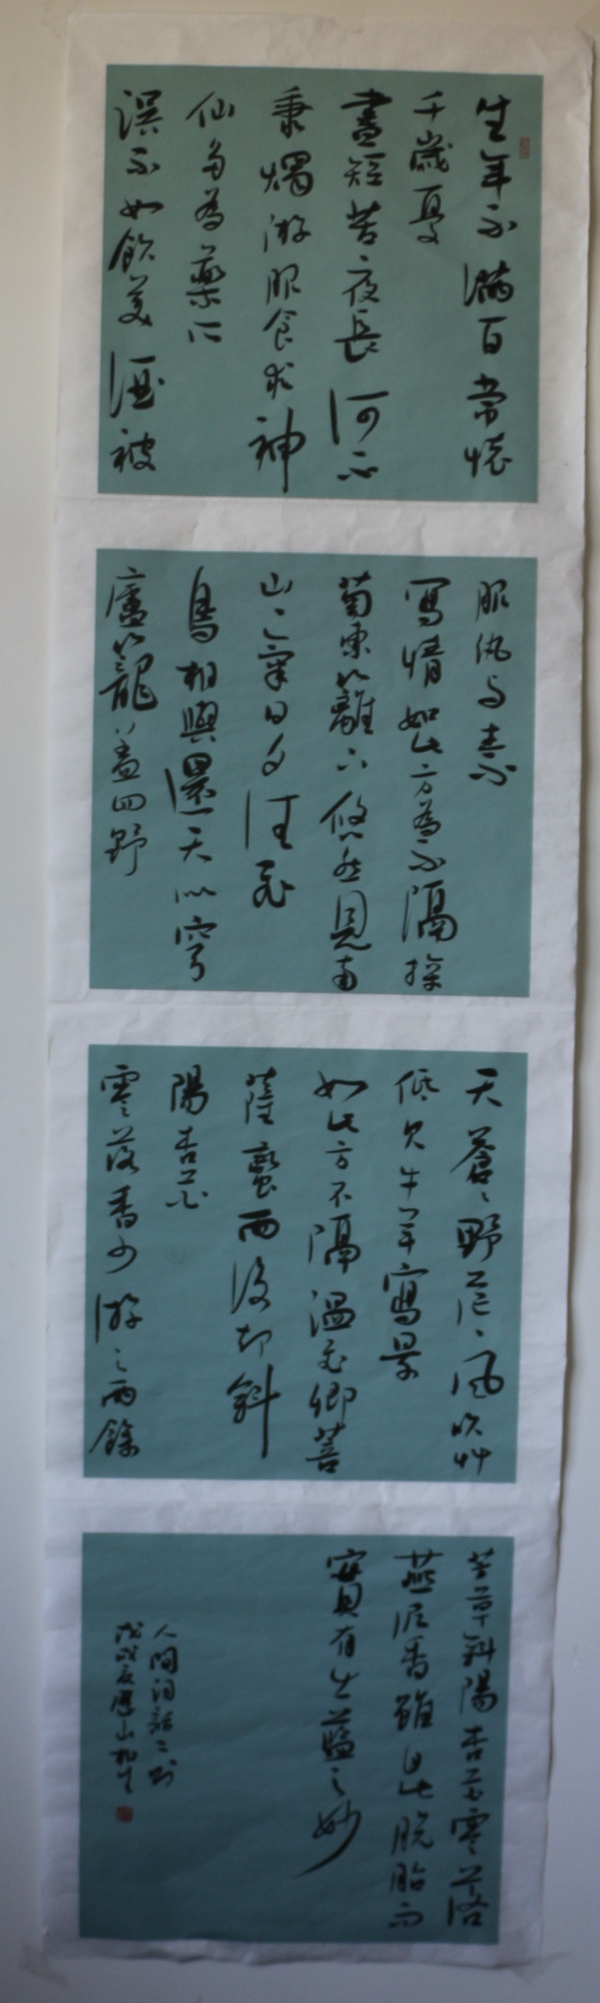 生年不滿百常懷
千歲憂
晝短苦夜長何不
秉燭游服食求神
仙多為藥所
誤不如飲美酒被
服紈與素
寫情如此方為不隔採
菊東籬下悠然見南
山〻氣日夕佳飛
鳥相與還天似穹
廬籠蓋四野
天蒼〻野茫〻風吹艸
低見牛羊寫景
如此方不隔溫飛卿菩
薩蠻雨後却斜
陽杏花
零落香少游之雨餘
芳草斜陽杏花零落
燕泥香雖自此脫胎而
實有出藍之妙
人間詞話二則
戊戌夏山